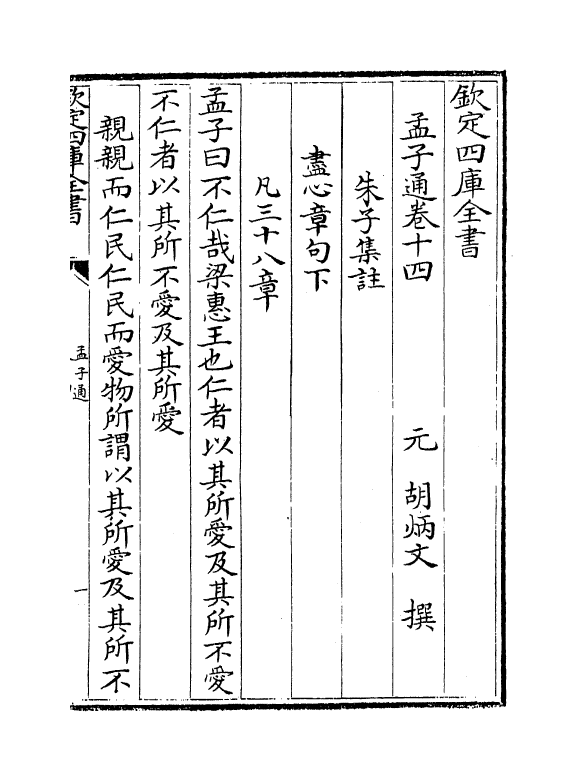 欽定四庫全書
孟子通卷十四　元　胡炳文　撰
朱子集註
盡心章句下
凡三十八章
孟子曰不仁哉梁惠王也仁者以其所愛及其所不愛
不仁者以其所不愛及其所愛
親親而仁民仁民而愛物所謂以其所愛及其所不
欽定四庫全書
孟子通
一